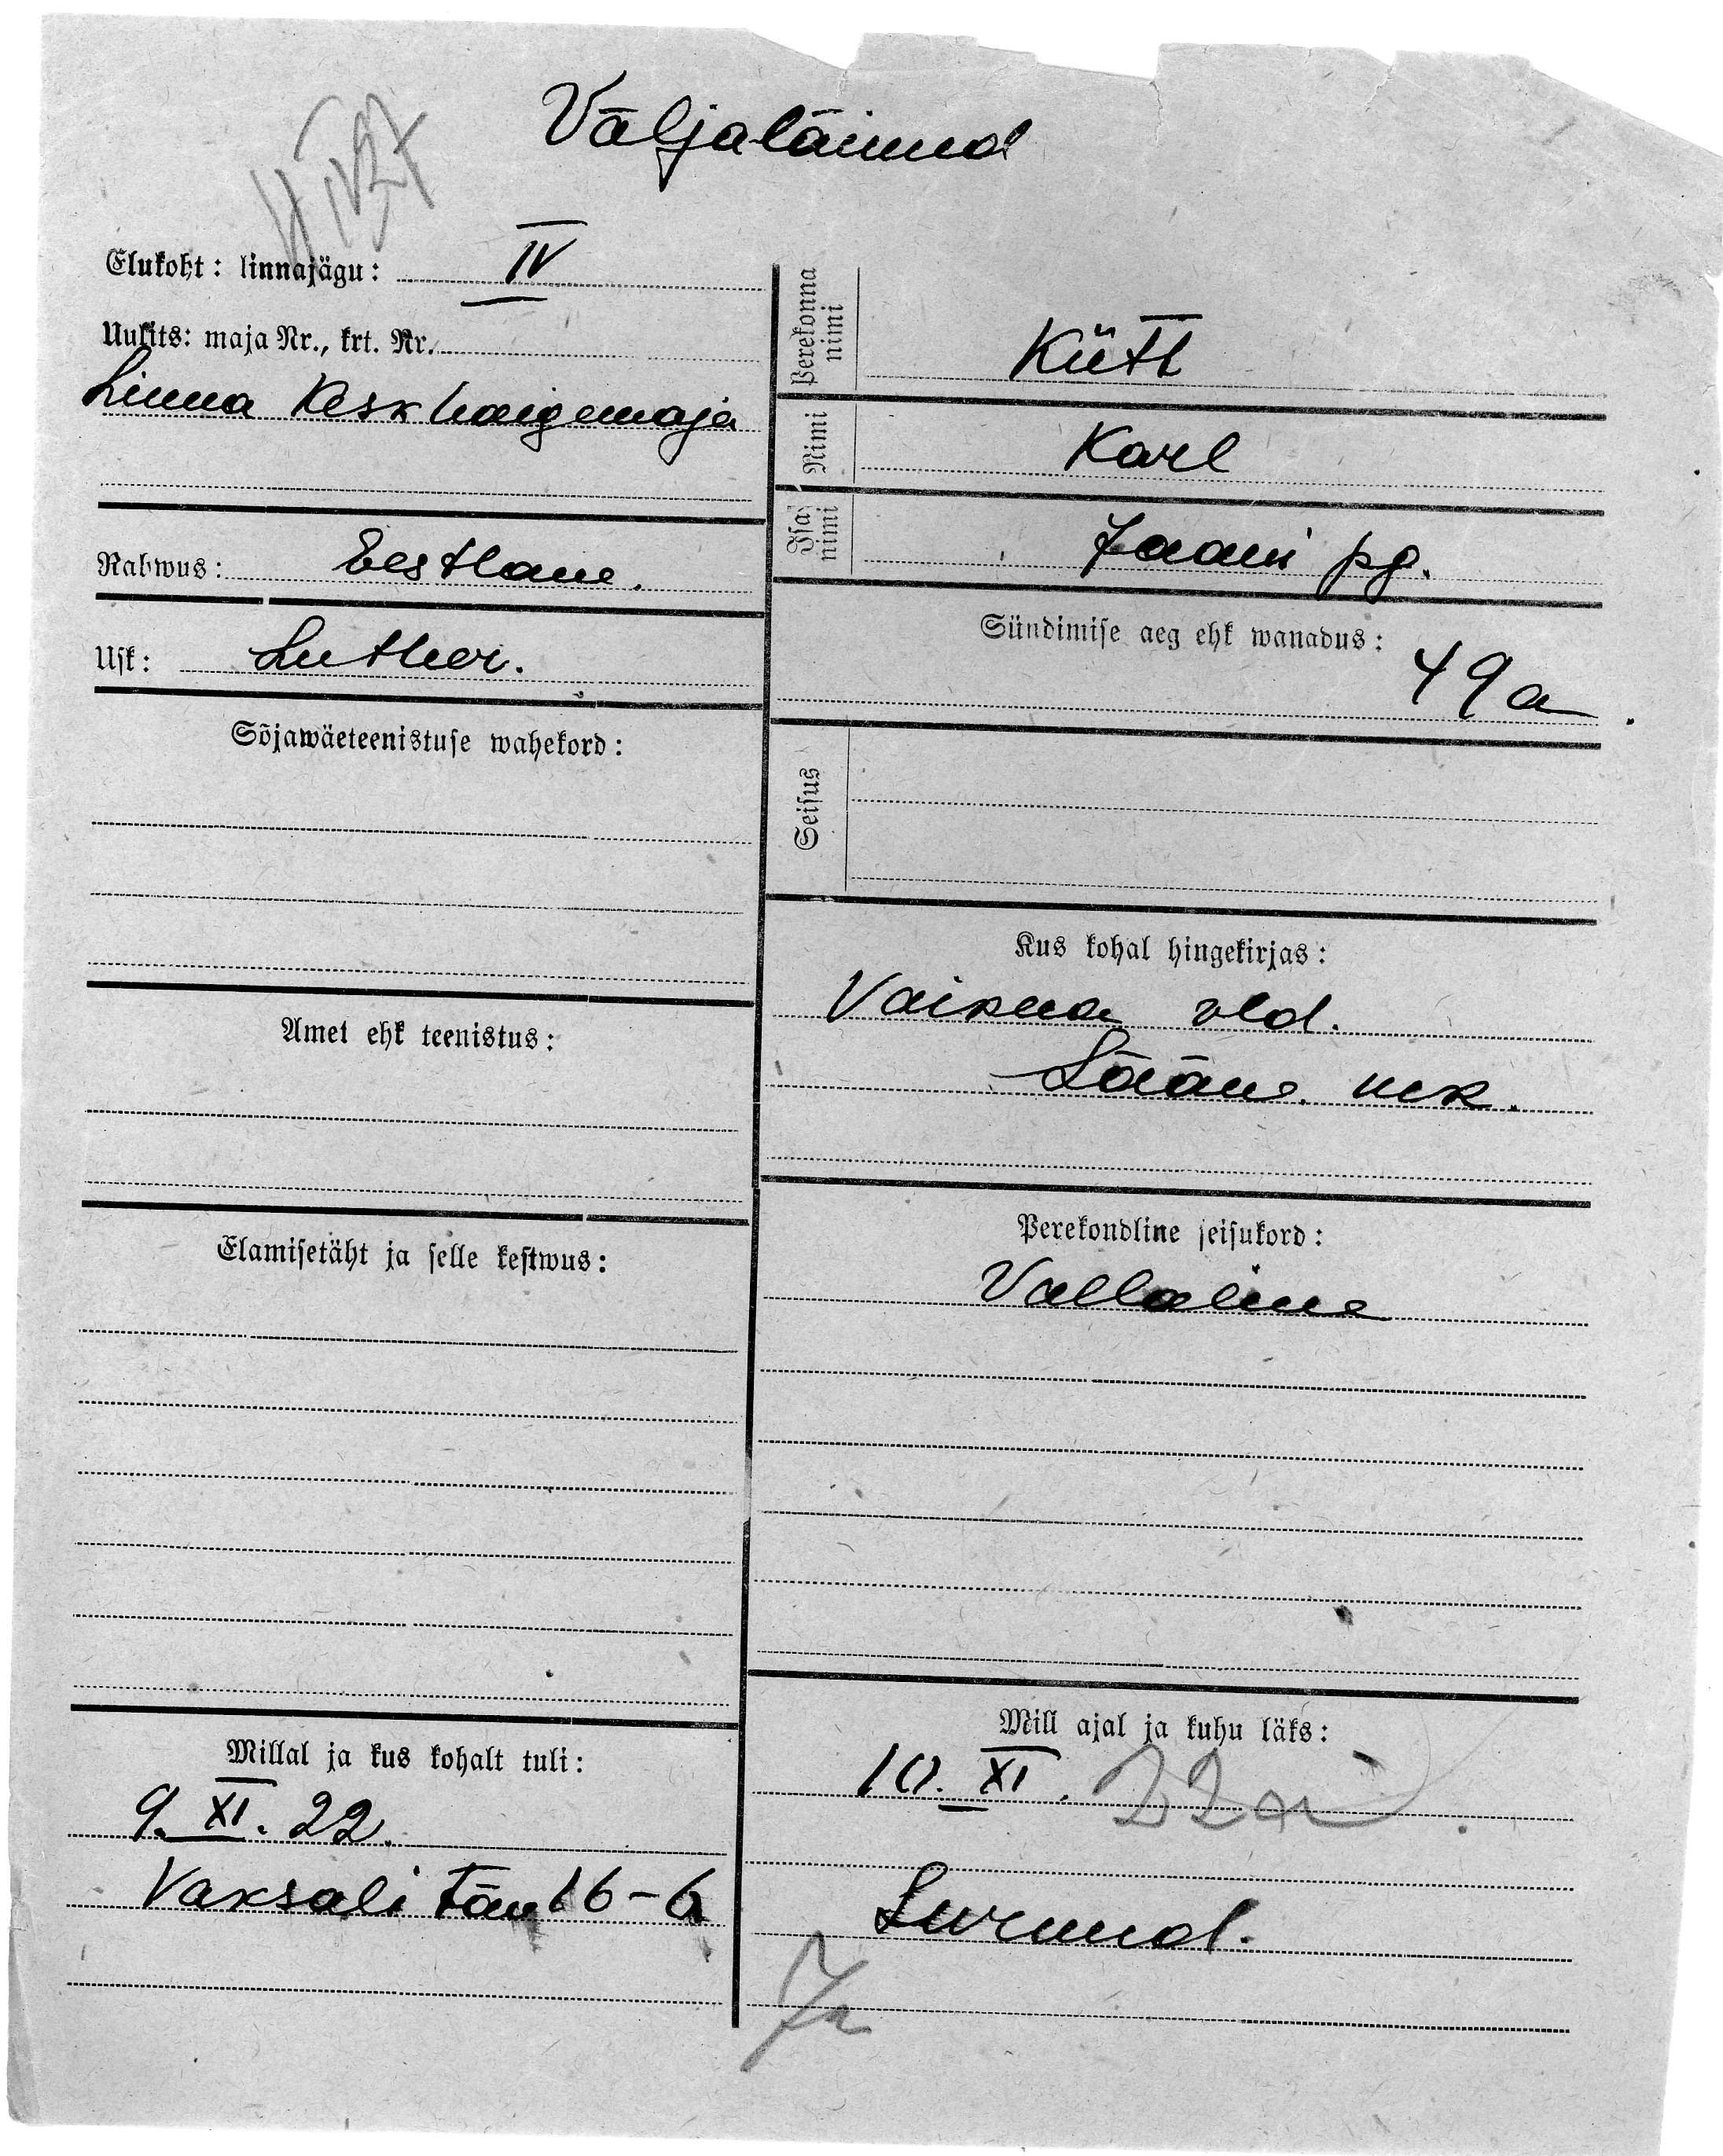 Väljaläinud
Elukoht: linnajägu: IV
Uulits: maja Nr., krt. Nr.
Linna Keskhaigemaja
Rahwus: Eestlane.
Usk: Luther.
Sõjawäeteenistuse wahekord:
Amet ehk teenistus:
Elamisetäht ja selle kestwus:
Millal ja kus kohalt tuli:
9. XI. 22.
Vaksali tän 16-6
Perekonna
nimi
Kütt
Nimi
Karl
Isa
nimi
Jaani pg.
Sündimise aeg ehk wanadus:
49 a.
Seisus
Kus kohal hingekirjas:
Vaikna vld.
Lääne. mk.
Perekondline seisukord:
Vallaline
Mill ajal ja kuhu läks:
10. XI. 22
Surnud.